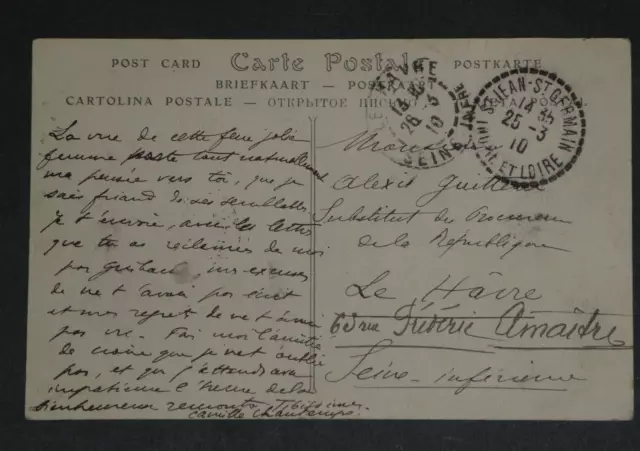 POST CARD Carte Postale POSTKARTE
BRIEFKAART
CARTOLINA POSTALE – ОТКРЫТОЕ
HAVRE
26 -3
10
SEINE INFRE
ST JEAN-ST GERMAIN
14 35
25 -3
10
INDRE ET LOIRE
La vue de cette jolie
femme porte tout naturellement
ma pensée vers toi, que je
sais friand de ses semblables
Je t'envoie, avec les lettres
que tu as
pas mes excuses
de ne t'avoir pas écrit
et mes regrets de ne t'avoir
pas vu. Fais moi l'amitié
de croire que je ne t'oublie
pas, et que j'attends avec
impatience l'heure de la
bienheureuse
Camille Chautemps.
Monsieur
Alexis
Substitut du Procureur
de la République
Le Hâvre
63 rue Frédéric Amaître
Seine-inférieure